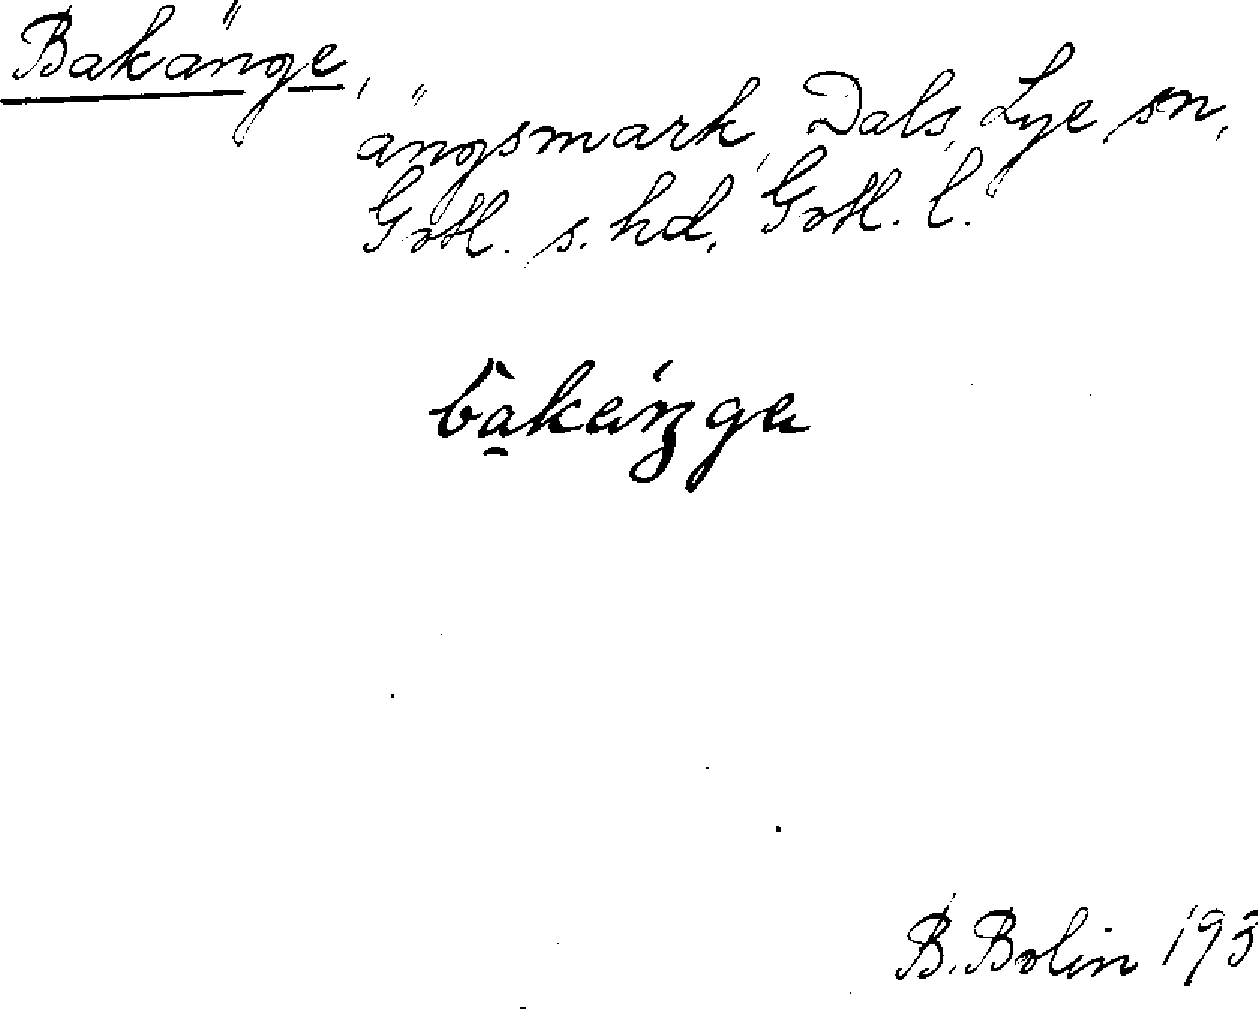 Bakänge,
ängsmark, Dals, Lye sn,
Gotl. s. hd, Gotl. l.
B. Bolin 193